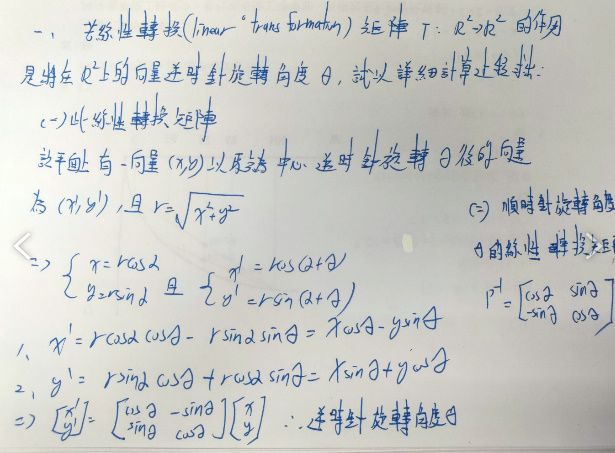 一、若線性轉換(linear transformation)矩陣 T: R²→R² 的作用
是將在 R²上的向量逆時針旋轉角度 θ，試以詳細計算過程求出:
(一)此線性轉換矩陣
設平面上有一向量(x,y)以原點為中心 逆時針旋轉 θ 後的向量
為 (x',y')，且 r=√(x²+y²)
=> { x=rcosα y=rsinα 且 { x'=rcos(α+θ) y'=rsin(α+θ)
1、x'=rcosα cosθ - rsinα sinθ = xcosθ-ysinθ
2、y'= rsinα cosθ + rcosα sinθ = xsinθ+ycosθ
=> [x' y'] = [cosθ -sinθ sinθ cosθ] [x y] ∴逆時針旋轉角度θ
(二) 順時針旋轉角度
θ的線性轉換矩
P⁻¹ = [cosθ sinθ -sinθ cosθ]